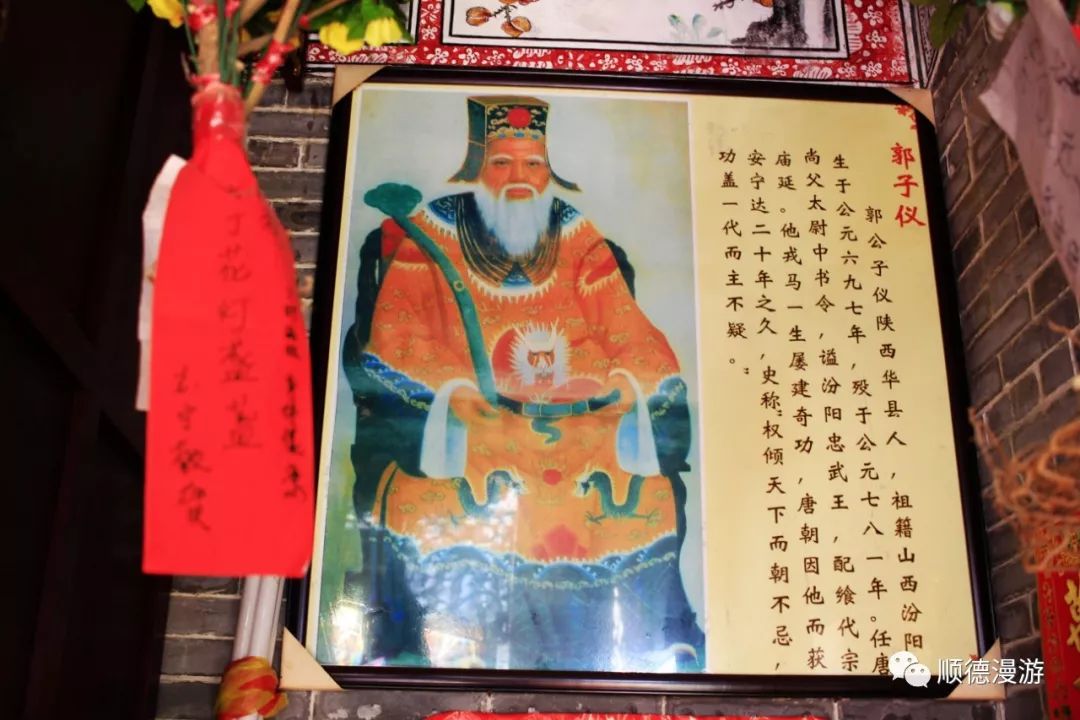 郭子仪
郭公子仪陕西华县人，祖籍山西汾阳
生于公元六九七年，殁于公元七八一年。任唐
尚父太尉中书令，谥汾阳忠武王，配飨代宗
庙延。他戎马一生屡建奇功，唐朝因他而获
安宁达二十年之久，史称“权倾天下而朝不忌，
功盖一代而主不疑。”
丁花灯盏
顺德漫游